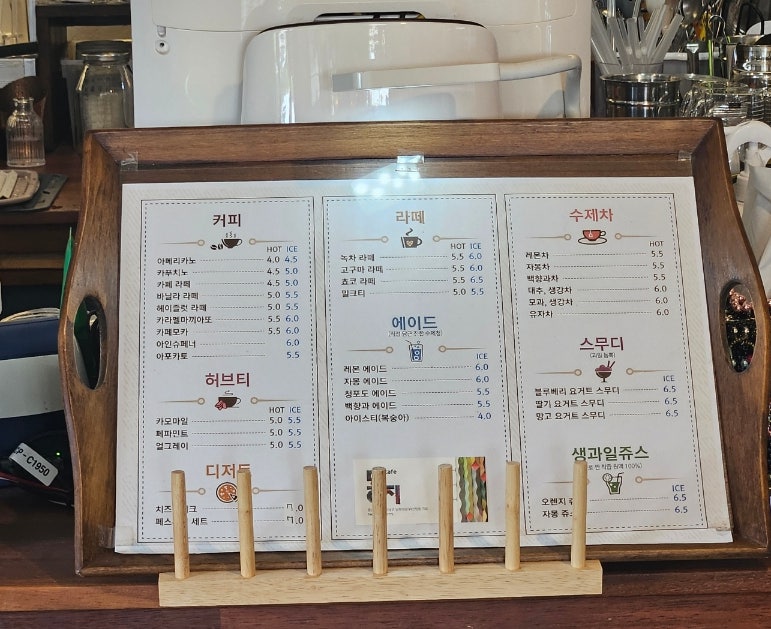 커피
HOT ICE
아메리카노 4.0 4.5
카푸치노 4.5 5.0
카페 라떼 4.5 5.0
바닐라 라떼 5.0 5.5
헤이즐럿 라떼 5.0 5.5
카라멜마끼아또 5.5 6.0
카페모카 5.5 6.0
아인슈페너 6.0
아포카토 5.5
허브티
HOT ICE
카모마일 5.0 5.5
페파민트 5.0 5.5
얼그레이 5.0 5.5
디저트
치즈
세트
라떼
HOT ICE
녹차 라떼 5.5 6.0
고구마 라떼 5.5 6.0
쵸코 라떼 5.5 6.5
밀크티 5.0 5.5
에이드
ICE
레몬 에이드 6.0
자몽 에이드 6.0
청포도 에이드 5.5
백향과 에이드 5.5
아이스티(복숭아) 4.0
cafe
수제차
HOT
레몬차 5.5
자몽차 5.5
백향과차 5.5
대추, 생강차 6.0
모과, 생강차 6.0
유자차 6.0
스무디
ICE
블루베리 요거트 스무디 6.5
딸기 요거트 스무디 6.5
망고 요거트 스무디 6.5
생과일쥬스
ICE
오렌지 6.5
자몽 쥬스 6.5
P-C1950